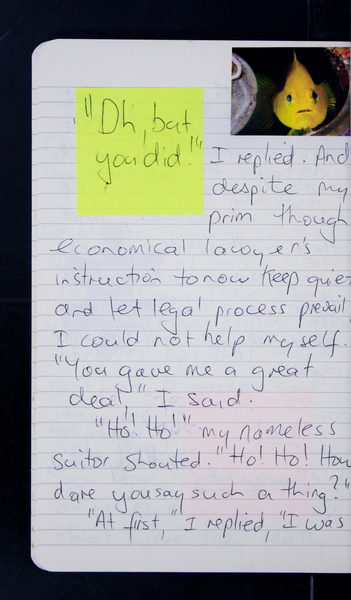 "Oh, but
you did!"
I replied. And
despite my
prim though
economical lawyer's
instruction to now keep quiet
and let legal process prevail,
I could not help myself.
"You gave me a great
deal," I said.
"Ho! Ho!" my nameless
suitor shouted. "Ho! Ho! How
dare you say such a thing?"
"At first," I replied, "I was